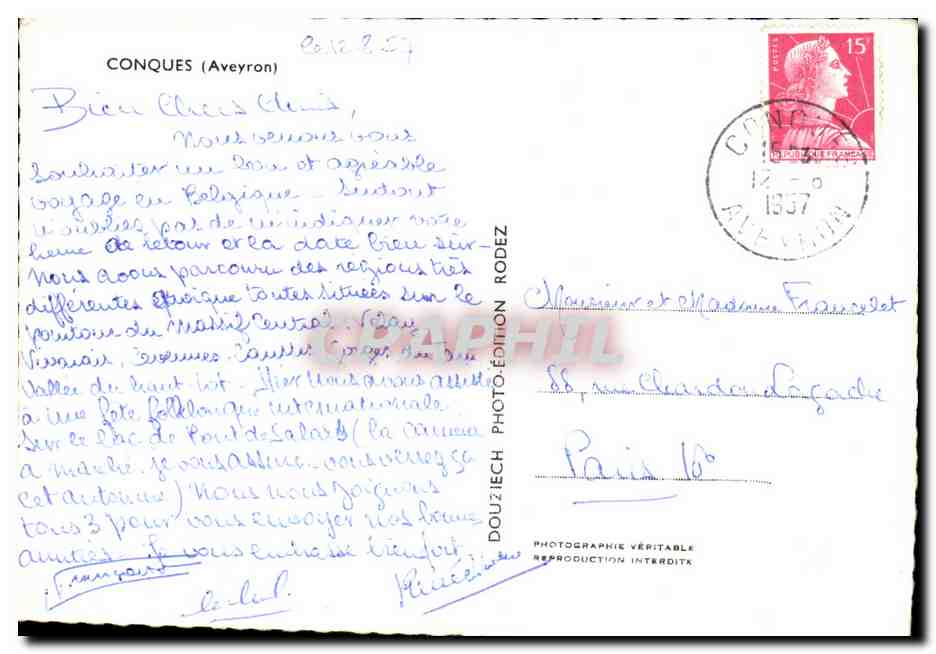 le 12.8.57
CONQUES (Aveyron)
Bien Chers Amis,
Nous venons vous
souhaiter un bon et agréable
voyage en Belgique. Surtout
n'oubliez pas de m'indiquer votre
heure de retour et la date bien sûr -
Nous avons parcouru des régions très
différentes quoique toutes situées sur le
pourtour du Massif Central : Velay
Vivarais, Cévennes, Causses, Gorges du Tarn
Vallée du haut Lot. Hier nous avons assisté
à une fête folklorique internationale
sur le lac de Pont de Salars (la caméra
a marché, je vous assure - vous verrez ça
cet automne) Nous nous joignons
tous 3 pour vous envoyer nos bonnes
amitiés. Je vous embrasse bien fort.
POSTES
15F
REPUBLIQUE FRANCAISE
CONQUES
12 - 8
1957
AVEYRON
DOUZIECH PHOTO-ÉDITION RODEZ
CPAPHIL
Monsieur et Madame Francelet
88, rue Chardon Lagache
Paris 16e
PHOTOGRAPHIE VÉRITABLE
REPRODUCTION INTERDITE